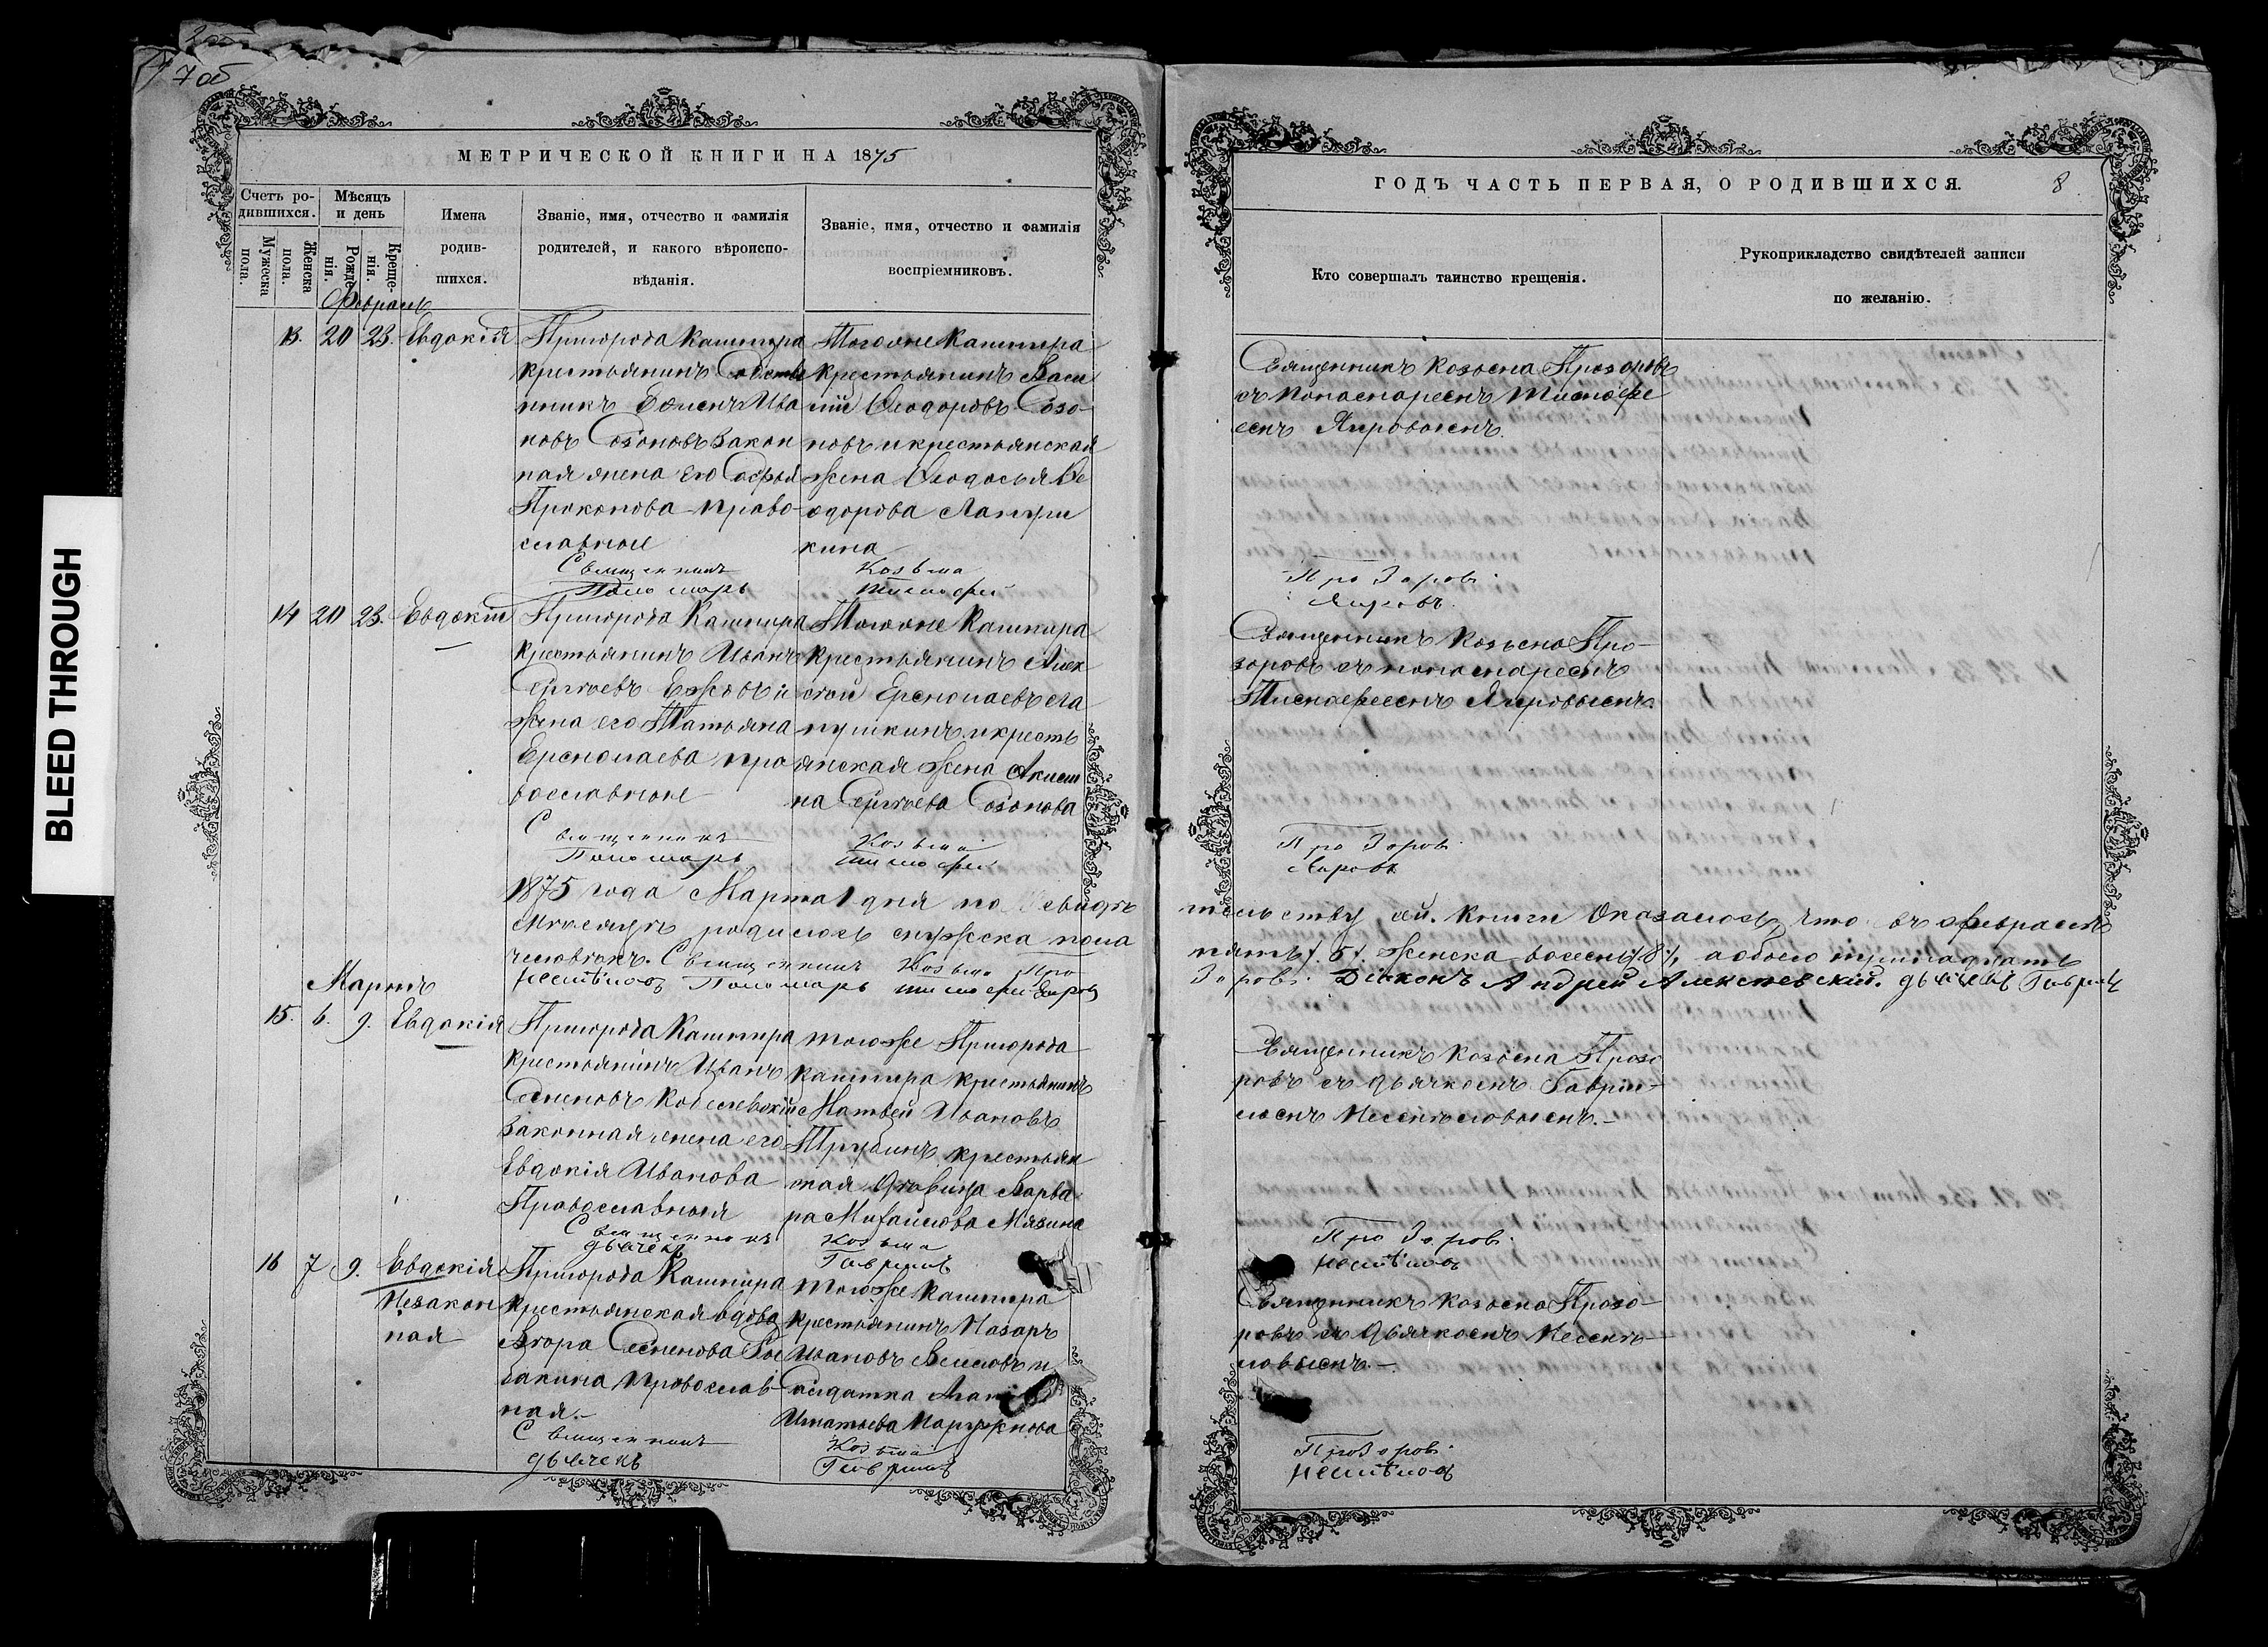 7 об
МЕТРИЧЕСКОЙ КНИГИ НА 1875
Счетъ ро-
дившихся.
Мужеска пола.
Женска пола.
Мѣсяцъ
и день
Рожде-
нія.
Креще-
нія.
Имена
родив-
шихся.
Званіе, имя, отчество и фамилія
родителей, и какого вѣроиспо-
вѣданія.
Званіе, имя, отчество и фамилія
воспріемниковъ.
Февраль
13. 20 23. Евдокія
Пригорода Кашпира
крестьянинъ Собстве
нникъ Ива
новъ Созоновъ закон
ная жена его Софья
Прокопова право-
славные
Тогоже Кашпира
крестьянинъ Васи
лій Ѳеодоровъ Созо-
новъ и крестьянская
жена Ѳеодосья Ѳе
одорова
кина
Священникъ Козьма
Пономарь Тимофей
14 20 23. Евдокія
Пригорода Кашпира
крестьянинъ Иванъ
Сергѣевъ Ежовъ и
жена его Татьяна
Ермолаева, пра
вославные
Тогоже Кашпира
крестьянинъ Алек
сѣй Ермолаевъ Ла
пушкинъ и кресть
янская жена Акули
на Сергѣева Созонова
Священникъ Козьма
Пономарь Тимофей
1875 года Марта 1 дня по свидѣ
Мѣсяцѣ родилось мужеска пола
человѣкъ. Священникъ Козьма Про
Пономарь Тимофей Яировъ
Мартъ
15. 6. 9. Евдокія
Пригорода Кашпира
крестьянинъ Иванъ
Семеновъ
законная жена его
Евдокія Иванова
Православныя
тогоже Пригорода
Кашпира крестьянинъ
Матвей Ивановъ
Трубинъ, крестьян
ская дѣвица Варва
ра Михайлова Мязина
Священникъ Козьма
дьячекъ Гавріилъ
16 7 9. Евдокія
Незакон
ная
Пригорода Кашпира
крестьянская вдова
Семенова
православ-
ная.-
Тогоже Кашпира
крестьянинъ Назаръ
Ивановъ и
Солдатка
Игнатьева
Священникъ Козьма
дьячекъ Гавріилъ
ГОДЪ ЧАСТЬ ПЕРВАЯ, О РОДИВШИХСЯ.
8
Кто совершалъ таинство крещенія.
Рукоприкладство свидѣтелей записи
по желанію.
Священникъ Козьма Прозоровъ
съ пономаремъ Тимофе
емъ Яировымъ.
Прозоровъ
Яировъ.
Священникъ Козьма Про-
зоровъ съ пономаремъ
Тимофеемъ Яировымъ
Прозоровъ
Яировъ
тельству сей книги Оказалось, что въ Февралѣ
пять/.5/. женска восемь/.8/. а обоего тринадцать
зоровъ. Діаконъ Андрей Алексѣевскій. дьячекъ Гавріилъ
Священникъ Козьма Прозо
ровъ съ дьячкомъ Гаврі-
иломъ
Прозоровъ
Священникъ Козьма Прозо-
ровъ съ дьячкомъ
Прозоровъ
BLEED THROUGH